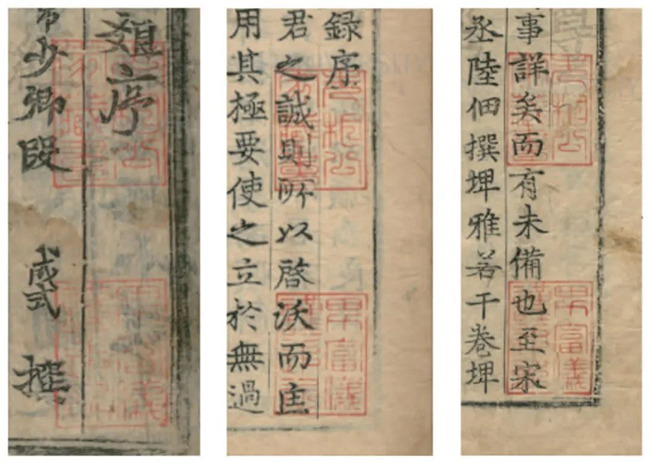 序
常少卿段 成式 撰
録序
君之誠則所以啓沃而匡
用其極要使之立於無過
事詳矣而有未備也至宋
丞陸佃撰埤雅若干卷埤